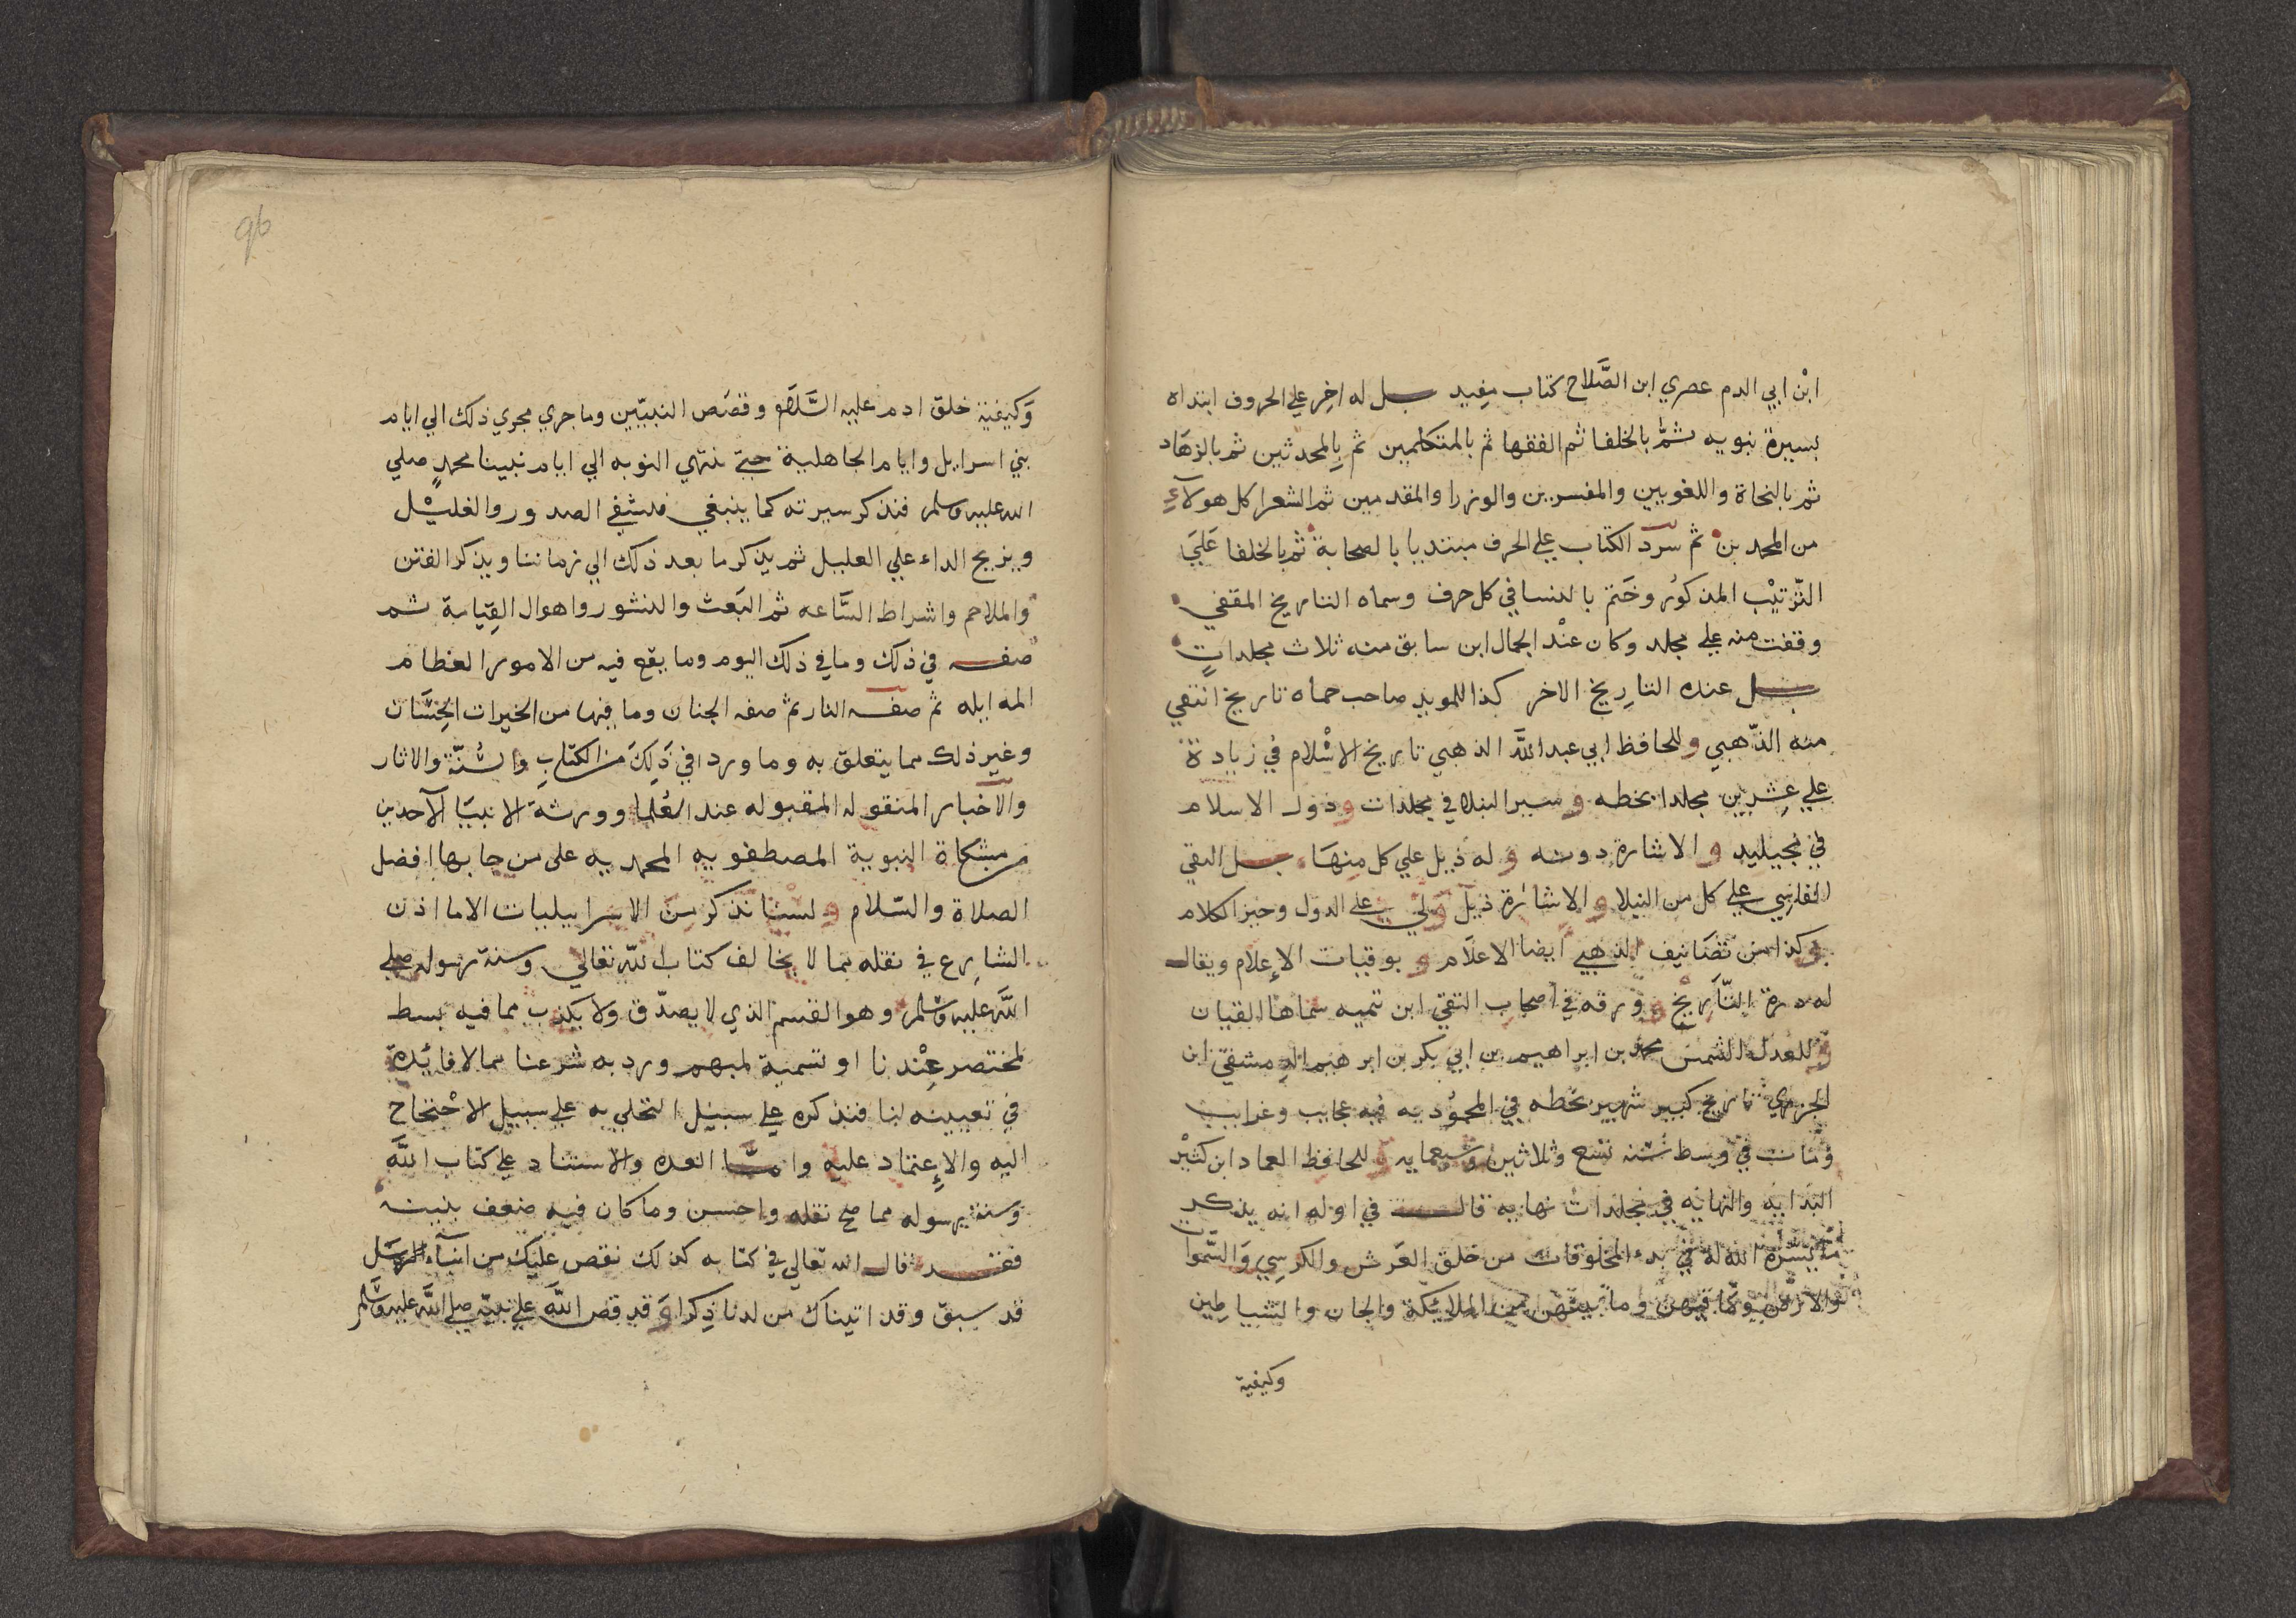 ابْن ابي الدم عصري ابن الصَّلاح كتاب مفيد بل له اخر علي الحروف ابتداه
بسيرة نبويه ثم بالخلفا ثم الفقها ثم بالمتكلمين ثم بالمحدثين ثم بالزهاد
ثم بالنحاة واللغويين والمفسرين والوزرا والمقدمين ثم الشعرا كل هولاء
من المحمدين ثم سرد الكتاب علي الحرف مبتديا بالصحابة ثم بالخلفا علي
الترتيْب المذكور وختم بالنسا في كل حرف وسماه التاريخ المقفي
وقفت منه علي مجلد وكان عنْد الجمال ابن سابق منه ثلاث مجلداتٍ
بل عنده التاريخ الاخر كذا للمويد صاحب حماه تاريخ انتقي
منه الذّهبي وللحافظ ابي عبد الله الذهبي تاريخ الاسْلام في زيادة
علي عشرين مجلدا بخطه وسير النبلا في مجلدات ودول الاسلام
في مجيليد والاشارة دونه وله ذيل علي كل منها بل التقي
الفاسي علي كل من النبلا والاشارة ذيل ولي علي الدول وجيز الكلام
وكذا من تصانيف الذهبي ايضا الاعلام وبوفيات الاعلام ويقال
له درة التاريخ وورقه في اصحاب التقي ابن تيميه سماها القبان
وللعدل الشمس محمد بن ابراهيم بن ابي بكر بن ابرهيم الدمشقي ابن
الجزري تاريخ كبير شهير بخطه في المحموديه فيه عجايب وغرايب
ومات في وسط سنه تسع وثلاثين وسبعمايه وللحافظ العماد ابن كثيْر
البدايه والنهايه في مجلدات نهايه قال في اوله انه يذكر
ما يسره الله له في بدء المخلوقات من خلق العرش والكرسي والسموات
والارض وما فيهن وما بينهن من الملايكة والجان والشياطين
وكيفية
96
وكيفية خلق ادم عليه السلام وقصص النبيّين وما جري مجري ذلك الي ايام
بني اسرايل وايام الجاهلية حتي تنتهي النوبه الي ايام نبينا محمدٍ صلي
الله عليه وسلم فنذكر سيرته كما ينبغي فنشفي الصدور والغليْل
ويزيح الداء علي العليل ثم يذكر ما بعد ذلك الي زماننا ويذكر الفتن
والملاحم واشراط السّاعه ثم البعث والنشور واهوال القيامة ثم
صفه في ذلك وما في ذلك اليوم وما يقع فيه من الامور العظام
ثم صفه النار ثم صفه الجنان وما فيها من الخيرات الحِسَان
وغير ذلك مما يتعلق به وما ورد في ذلك من الكتاب والسُنّة والاثار
والاخبار المنقوله المقبوله عند العُلما وورثة الانبيا الآخدين
من مشكاة النبوية المصطفويه المحمديه علي من جا بها افضل
الصلاة والسّلام ولسنا نذكر من الاسرايليات الا ما اذن
الشارع في نقله مما لا يخالف كتاب الله تعالي وسنة رسوله صلي
الله عليه وسلم وهو القسم الذي لا يصدّق ولا يكذب مما فيه بسط
لمختصر عنْدنا او تسمية لمبهم ورد به شرعنا مما لا فايدة
في تعيينه لنا فنذكره علي سبيل التحلي به علي سبيل الاحْتجاج
اليه والاعتماد عليه وانما العمده والاستناد علي كتاب الله
وسنة رسوله مما صح نقله واحسن وما كان فيه ضعف نبينه
فقد قال الله تعالي في كتابه كذلك نقص عليك من انباء
قد سبق وقد اتيناك من لدنا ذكرا وقد قص الله علي نبيه صلي الله عليه وسلم